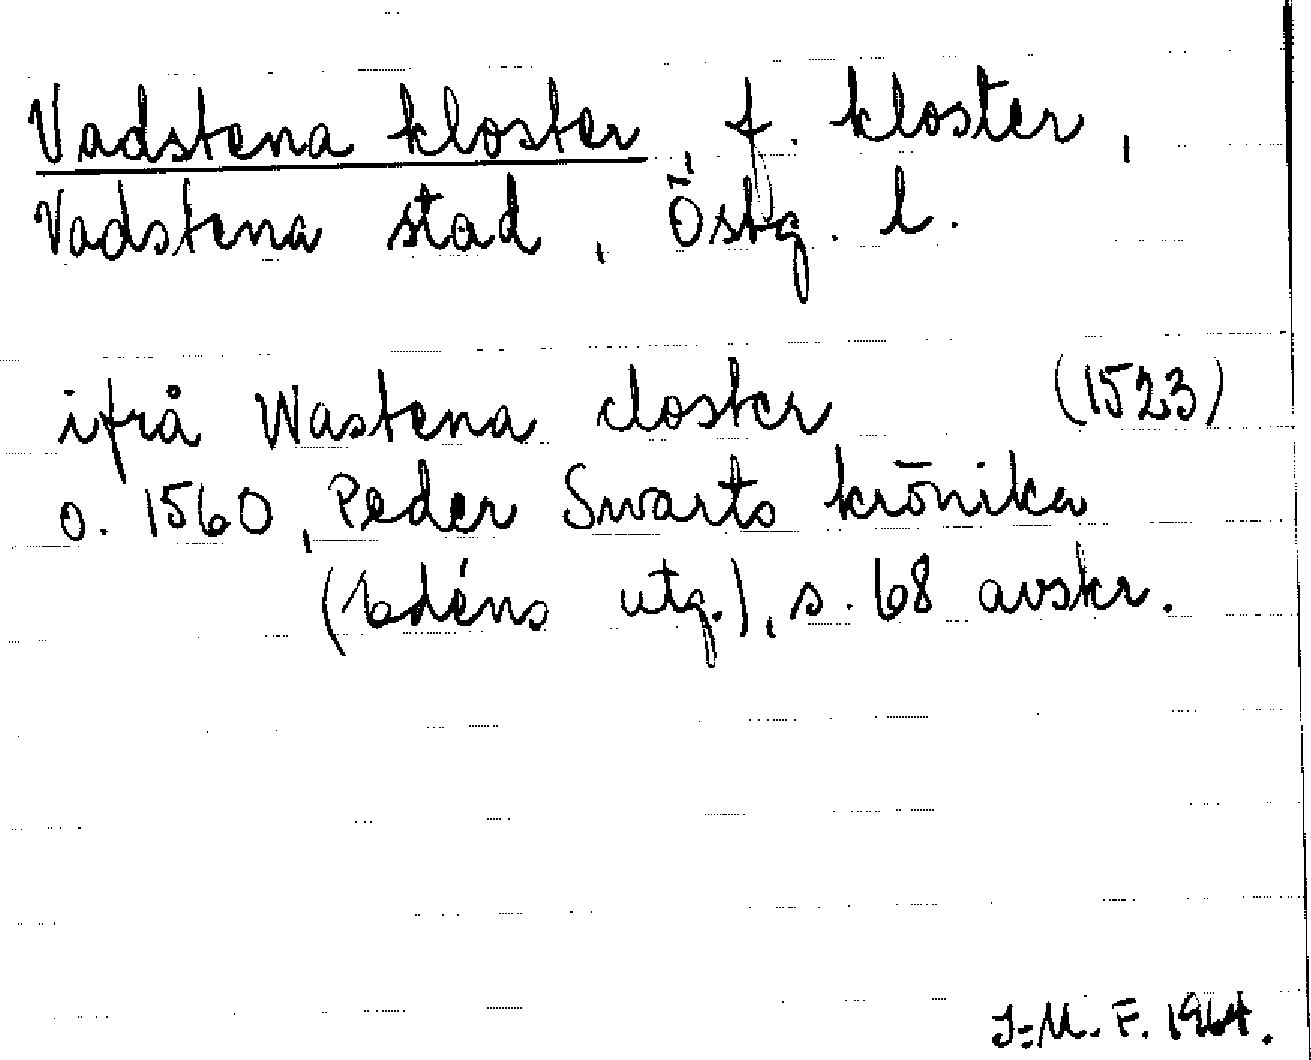 Vadstena kloster, f. kloster,
Vadstena stad, Östg. l.
ifrå Wastena closter (1523)
o. 1560, Peder Swarts krönika
(Edéns utg.), s. 68 avskr.
J-M. F. 1964.